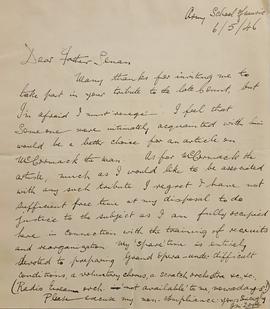 Army School of Music
6/5/46
Dear Father Senan
Many thanks for inviting me to
take part in your tribute to the late Count, but
I'm afraid I must resign. I feel that
someone more intimately acquainted with him
would be a better choice for an article on
McCormack the man. As for McCormack the
artiste, much as I would like to be associated
with any such tribute I regret I have not
sufficient free time at my disposal to do
justice to the subject as I am fully occupied
here in connection with the training of recruits
and reorganization my "spare" time is entirely
devoted to preparing Grand Opera under difficult
conditions, a voluntary chorus, a scratch orchestra &c, &c.
(Radio Eireann orch. is not available to me nowadays!)
Please excuse my non-compliance